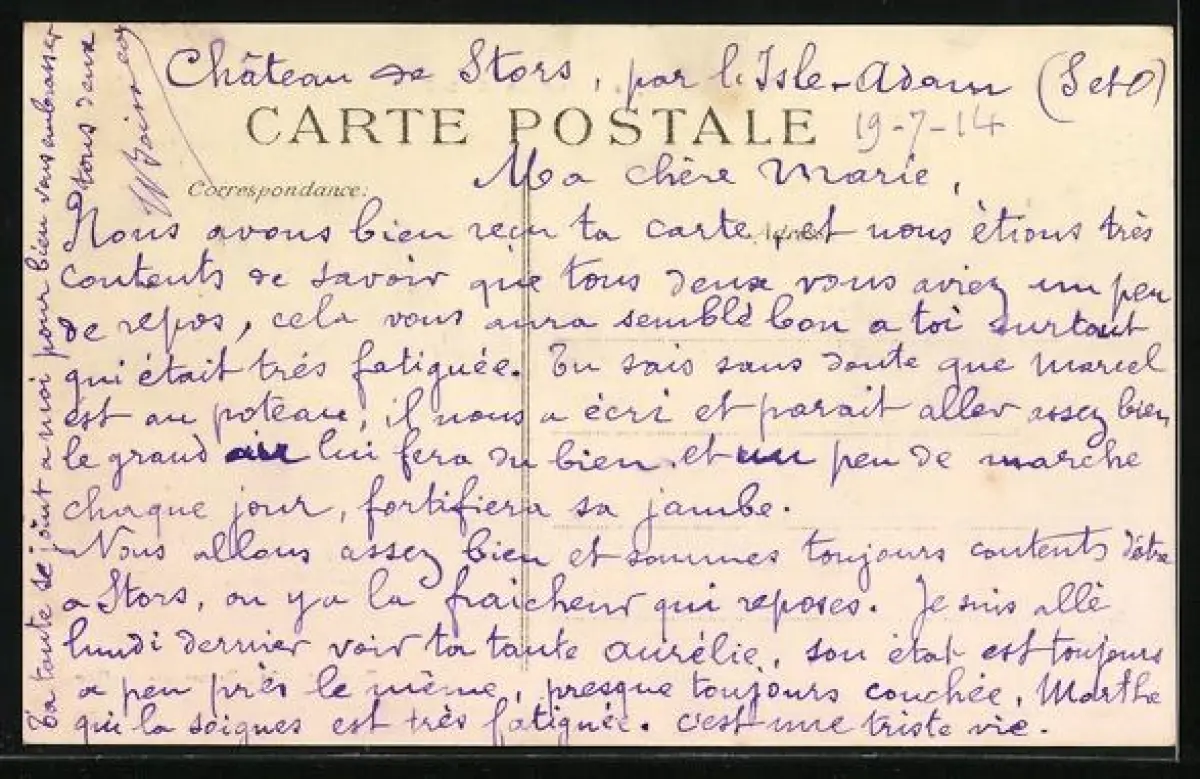 Château de Stors, par l'Isle-Adam (S et O)
CARTE POSTALE
19-7-14
Ma chère Marie,
Correspondance:
Nous avons bien reçu ta carte, et nous étions très
contents de savoir que tous deux vous aviez un peu
de repos, cela vous aura semblé bon a toi surtout
qui était trés fatiguée. Tu sais sans doute que Marcel
est au poteau, il nous a écri et parait aller assez bien,
le grand air lui fera du bien. et un peu de marche
chaque jour, fortifiera sa jambe.
Nous allons assez bien et sommes toujours contents d'être
a Stors, on y a la fraicheur qui reposes. Je suis allé
lundi dernier voir ta tante Aurélie, son état est toujours
a peu près le même, presque toujours couchée, Marthe
qui la soignes est très fatiguée. c'est une triste vie.
Ta tante se joint a moi pour bien vous embrasser
tous deux